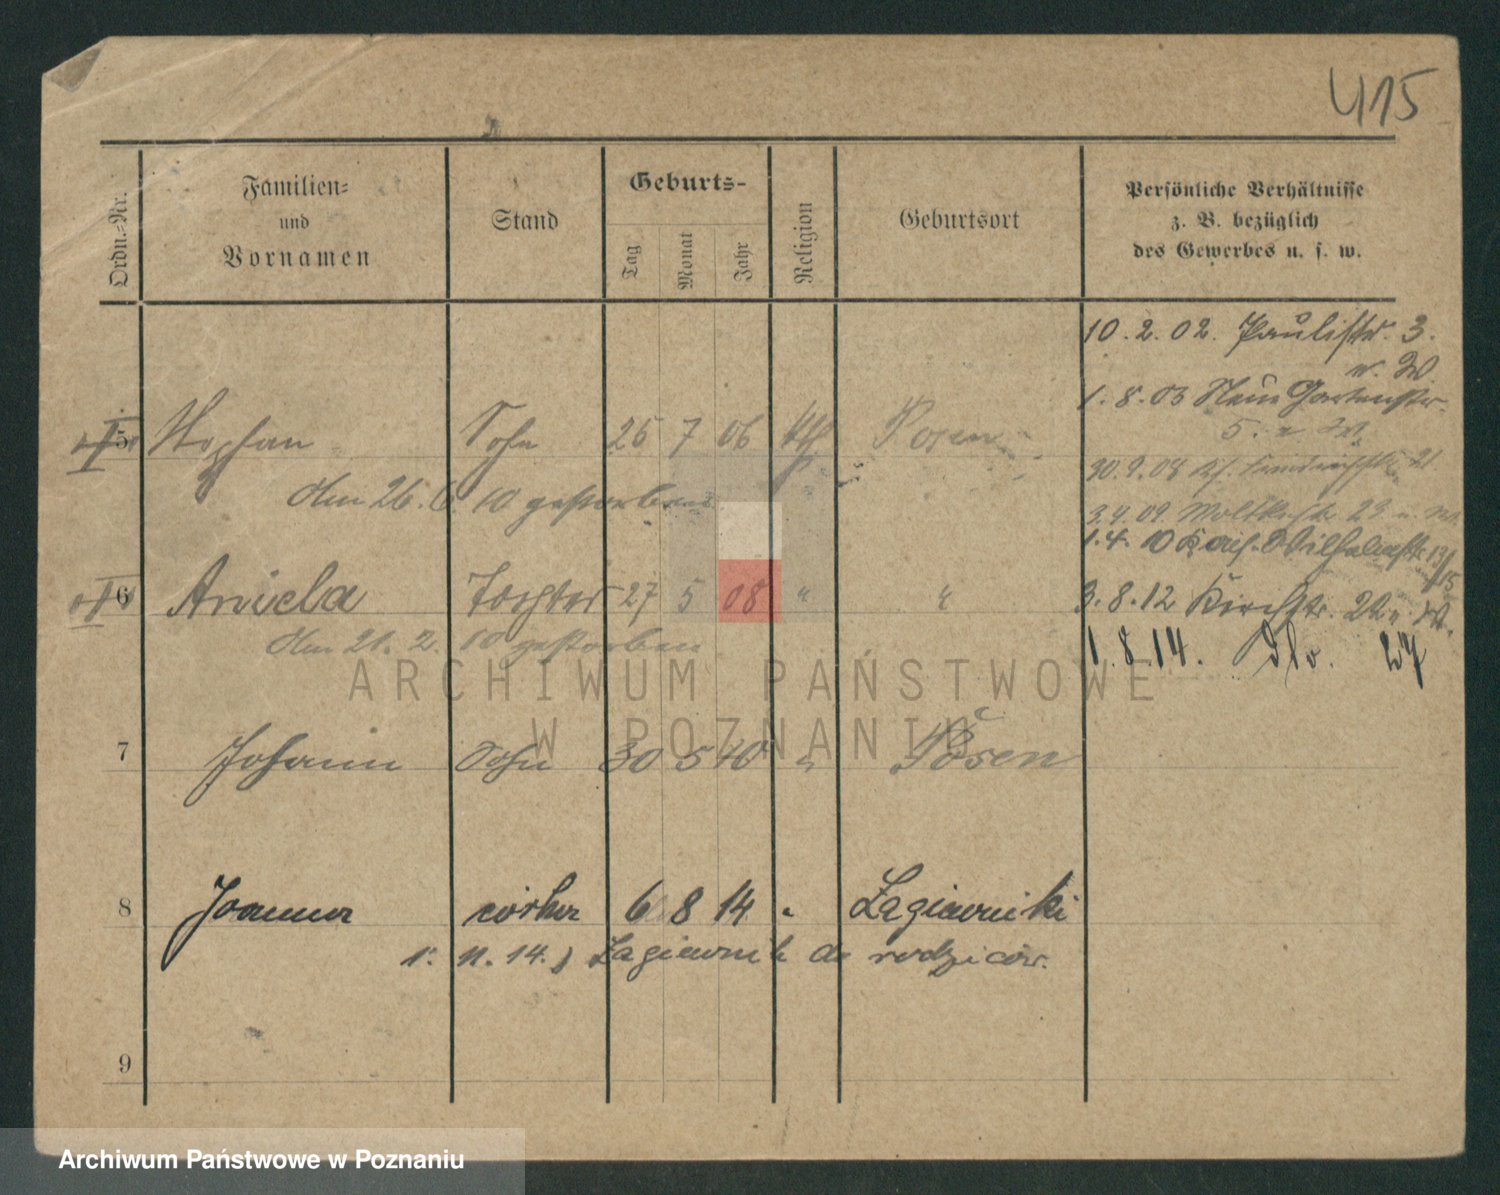 415
Ordn.-Nr.
Familien-
und
Vornamen
Stand
Geburts-
Tag
Monat
Jahr
Religion
Geburtsort
Persönliche Verhältnisse
z. B. bezüglich
des Gewerbes u. s. w.
10. 2. 02. Paulistr. 3.
1. 8. 03 Neue Gartenstr.
5
5 Stephan Sohn 25 7 06 kth Posen
30. 9. 08 21
Am 26. 6. 10 gestorben
3. 4. 09 Moltkestr. 23
1. 4. 10 Wilhelmstr. 13/15
6 Aniela Tochter 27 5 08 " "
3. 8. 12 Kirchstr. 22
Am 21. 2. 10 gestorben
1. 8. 14. 27
ARCHIWUM PAŃSTWOWE
W POZNANIU
7 Johann Sohn 30 5 10 " Posen
8 Joanna córka 6 8 14 " Łagiewniki
1. 11. 14. Łagiewnik do rodziców.
9
Archiwum Państwowe w Poznaniu